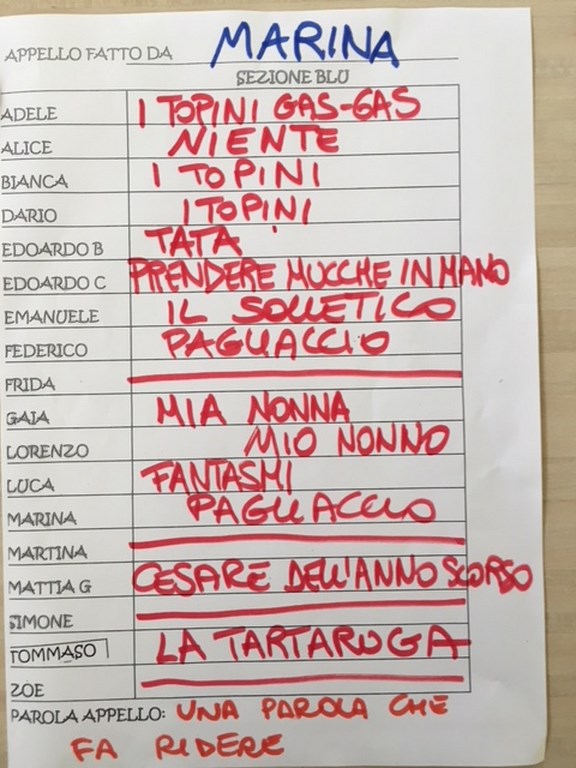 APPELLO FATTO DA MARINA
SEZIONE BLU
ADELE I TOPINI GAS-GAS
ALICE NIENTE
BIANCA I TOPINI
DARIO I TOPINI
EDOARDO B TATA
EDOARDO C PRENDERE MUCCHE IN MANO
EMANUELE IL SOLLETICO
FEDERICO PAGLIACCIO
FRIDA
GAIA MIA NONNA
LORENZO MIO NONNO
LUCA FANTASMI
MARINA PAGLIACCIO
MARTINA
MATTIA G CESARE DELL'ANNO SCORSO
SIMONE
TOMMASO LA TARTARUGA
ZOE
PAROLA APPELLO: UNA PAROLA CHE
FA RIDERE